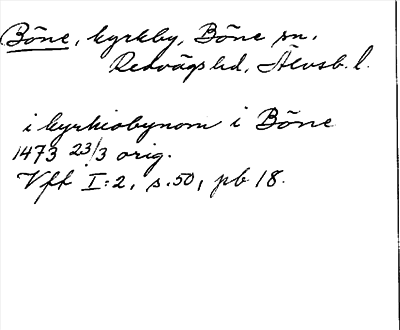 Böne, kyrkby, Böne sn.
Redvägs hd, Älvsb. l.
i kyrkiobynom i Böne
1473 23/3 orig.
Vff I:2, s. 50, pb 18.